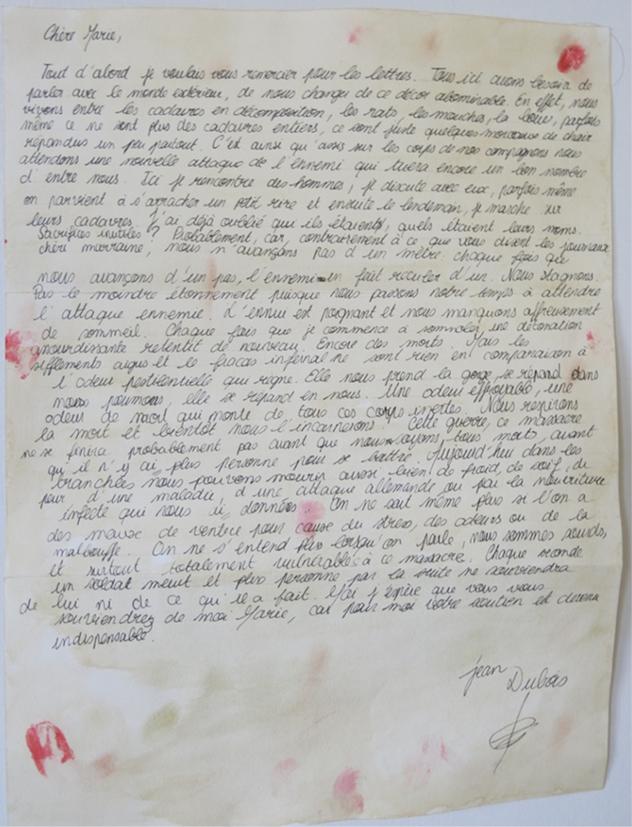 Chère Marie,
Tout d'abord je voulais vous remercier pour les lettres. Tous ici avons besoin de
parler avec le monde extérieur, de nous changer de ce décor abominable. En effet, nous
vivons entre les cadavres en décomposition, les rats, les mouches, la boue, parfois
même ce ne sont plus des cadavres entiers, ce sont juste quelques morceaux de chair
répandus un peu partout. C'est ainsi qu'assis sur les corps de nos compagnons nous
attendons une nouvelle attaque de l'ennemi qui tuera encore un bon nombre
d'entre nous. Ici je rencontre des hommes, je discute avec eux, parfois même
on parvient à s'arracher un petit rire et ensuite le lendemain, je marche sur
leurs cadavres, j'ai déjà oublié qui ils étaient, quels étaient leurs noms.
Sacrifices inutiles ? Probablement, car, contrairement à ce que vous disent les journaux
chèri marraine, nous n'avançons pas d'un mètre. chaque fois que
nous avançons d'un pas, l'ennemi en fait reculer d'un. Nous stagnons.
Pas le moindre étonnement puisque nous passons notre temps à attendre
l'attaque ennemie. L'ennui est poignant et nous manquons affreusement
de sommeil. Chaque fois que je commence à somnoler, une détonation
assourdissante retentit de nouveau. Encore des morts. Mais les
sifflements aigus et le fracas infernal ne sont rien en comparaison à
l'odeur pestientielle qui règne. Elle nous prend la gorge, se répand dans
nos poumons, elle se répand en nous. Une odeur effroyable, une
odeur de mort qui monte de tous ces corps inertes. Nous respirons
la mort et bientôt nous l'incarnerons. Cette guerre, ce massacre
ne se finira probablement pas avant que nous soyons tous morts, avant
qu'il n'y ai plus personne pour se battre. Aujourd'hui dans les
tranchées nous pouvons mourir aussi bien de froid, de soif, de
peur d'une maladie, d'une attaque allemande ou par la nourriture
infecte qui nous est donnée. On ne sait même plus si l'on a
des maux de ventre pour cause du stress, des odeurs ou de la
malbouffe. On ne s'entend plus lorsqu'on parle, nous sommes sourds,
et surtout totalement vulnérables à ce massacre. Chaque seconde
un soldat meurt et plus personne par la suite ne souviendra
de lui ni de ce qu'il a fait. Moi j'espère que vous vous
souviendrez de moi Marie, car pour moi votre soutien est devenu
indispensable.
Jean
Dubois